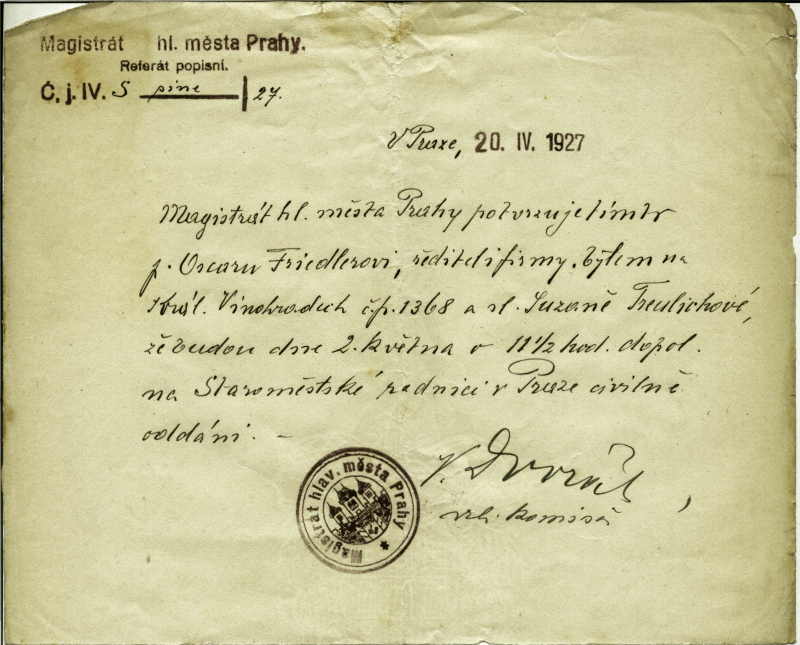 Magistrát hl. města Prahy.
Referát popisní.
Č. j. IV. S pine / 27.
V Praze, 20. IV. 1927
Magistrát hl. města Prahy potvrzuje tímto
p. Oscaru Friedlerovi, řediteli firmy, bytem na
Král. Vinohradech č.p. 1368 a sl. Suzaně Freulichové,
že budou dne 2. května o 11 1/2 hod. dopol.
na Staroměstské radnici v Praze civilně
oddáni. –
V. Dvořák,
vrch. komisař
Magistrát hlav. města Prahy